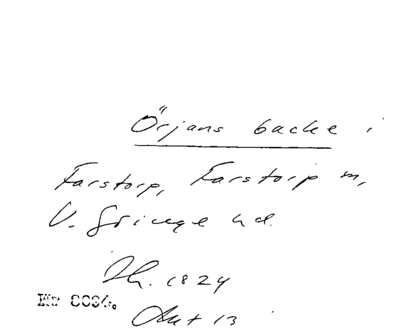 Örjans backe i
Farstorp, Farstorp sn,
V. Göinge hd.
Sk. 1824
Akt 13